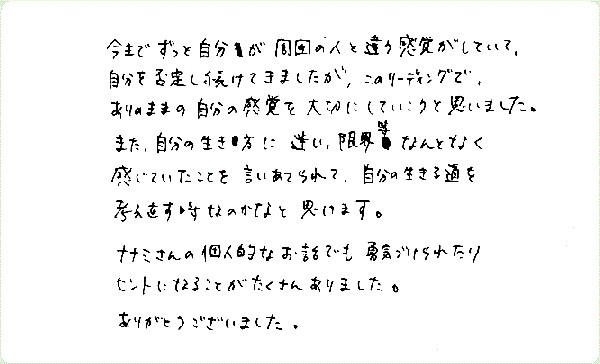 今までずっと自分が周囲の人と違う感覚がしていて、
自分を否定し続けてきましたが、このリーディングで、
ありのままの自分の感覚を大切にしていこうと思いました。
また、自分の生き方に迷い、限界等なんとなく
感じていたことを言いあてられて、自分の生きる道を
考え直す時なのかなと思けます。
ナナミさんの個人的なお話でも勇気づけられたり
ヒントになることがたくさんありました。
ありがとうございました。